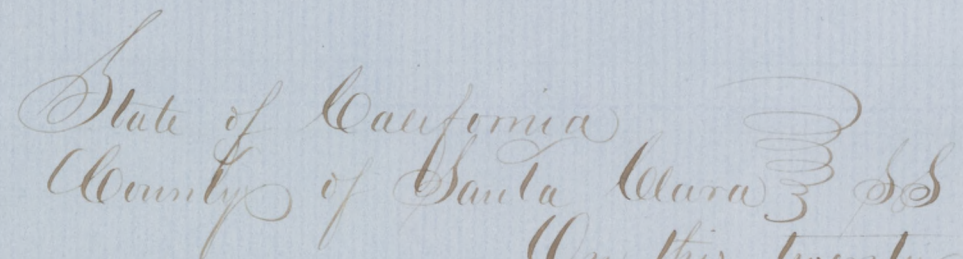 State of California
County of Santa Clara } SS
On this twenty